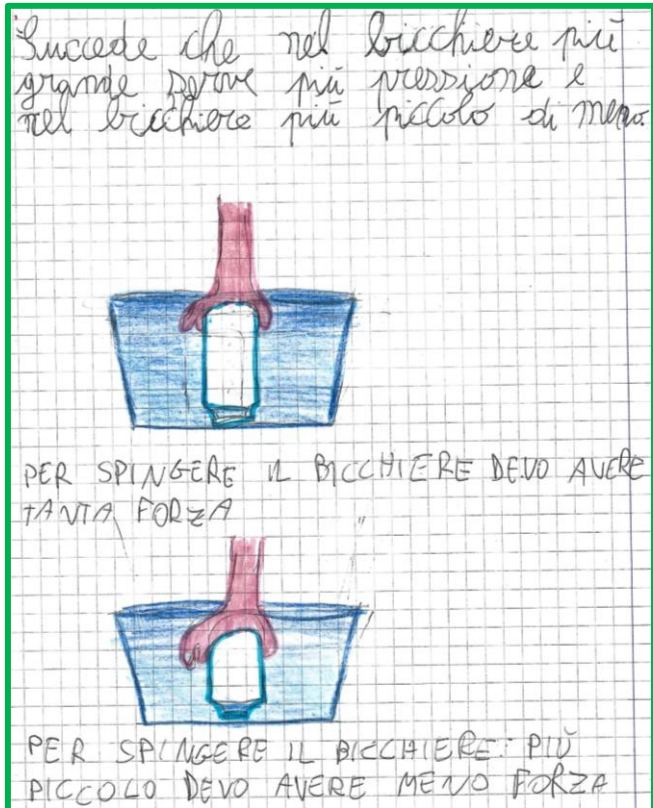 Succede che nel bicchiere più
grande serve più pressione e
nel bicchiere più piccolo di meno.
PER SPINGERE IL BICCHIERE DEVO AVERE
TANTA FORZA
PER SPINGERE IL BICCHIERE PIÙ
PICCOLO DEVO AVERE MENO FORZA